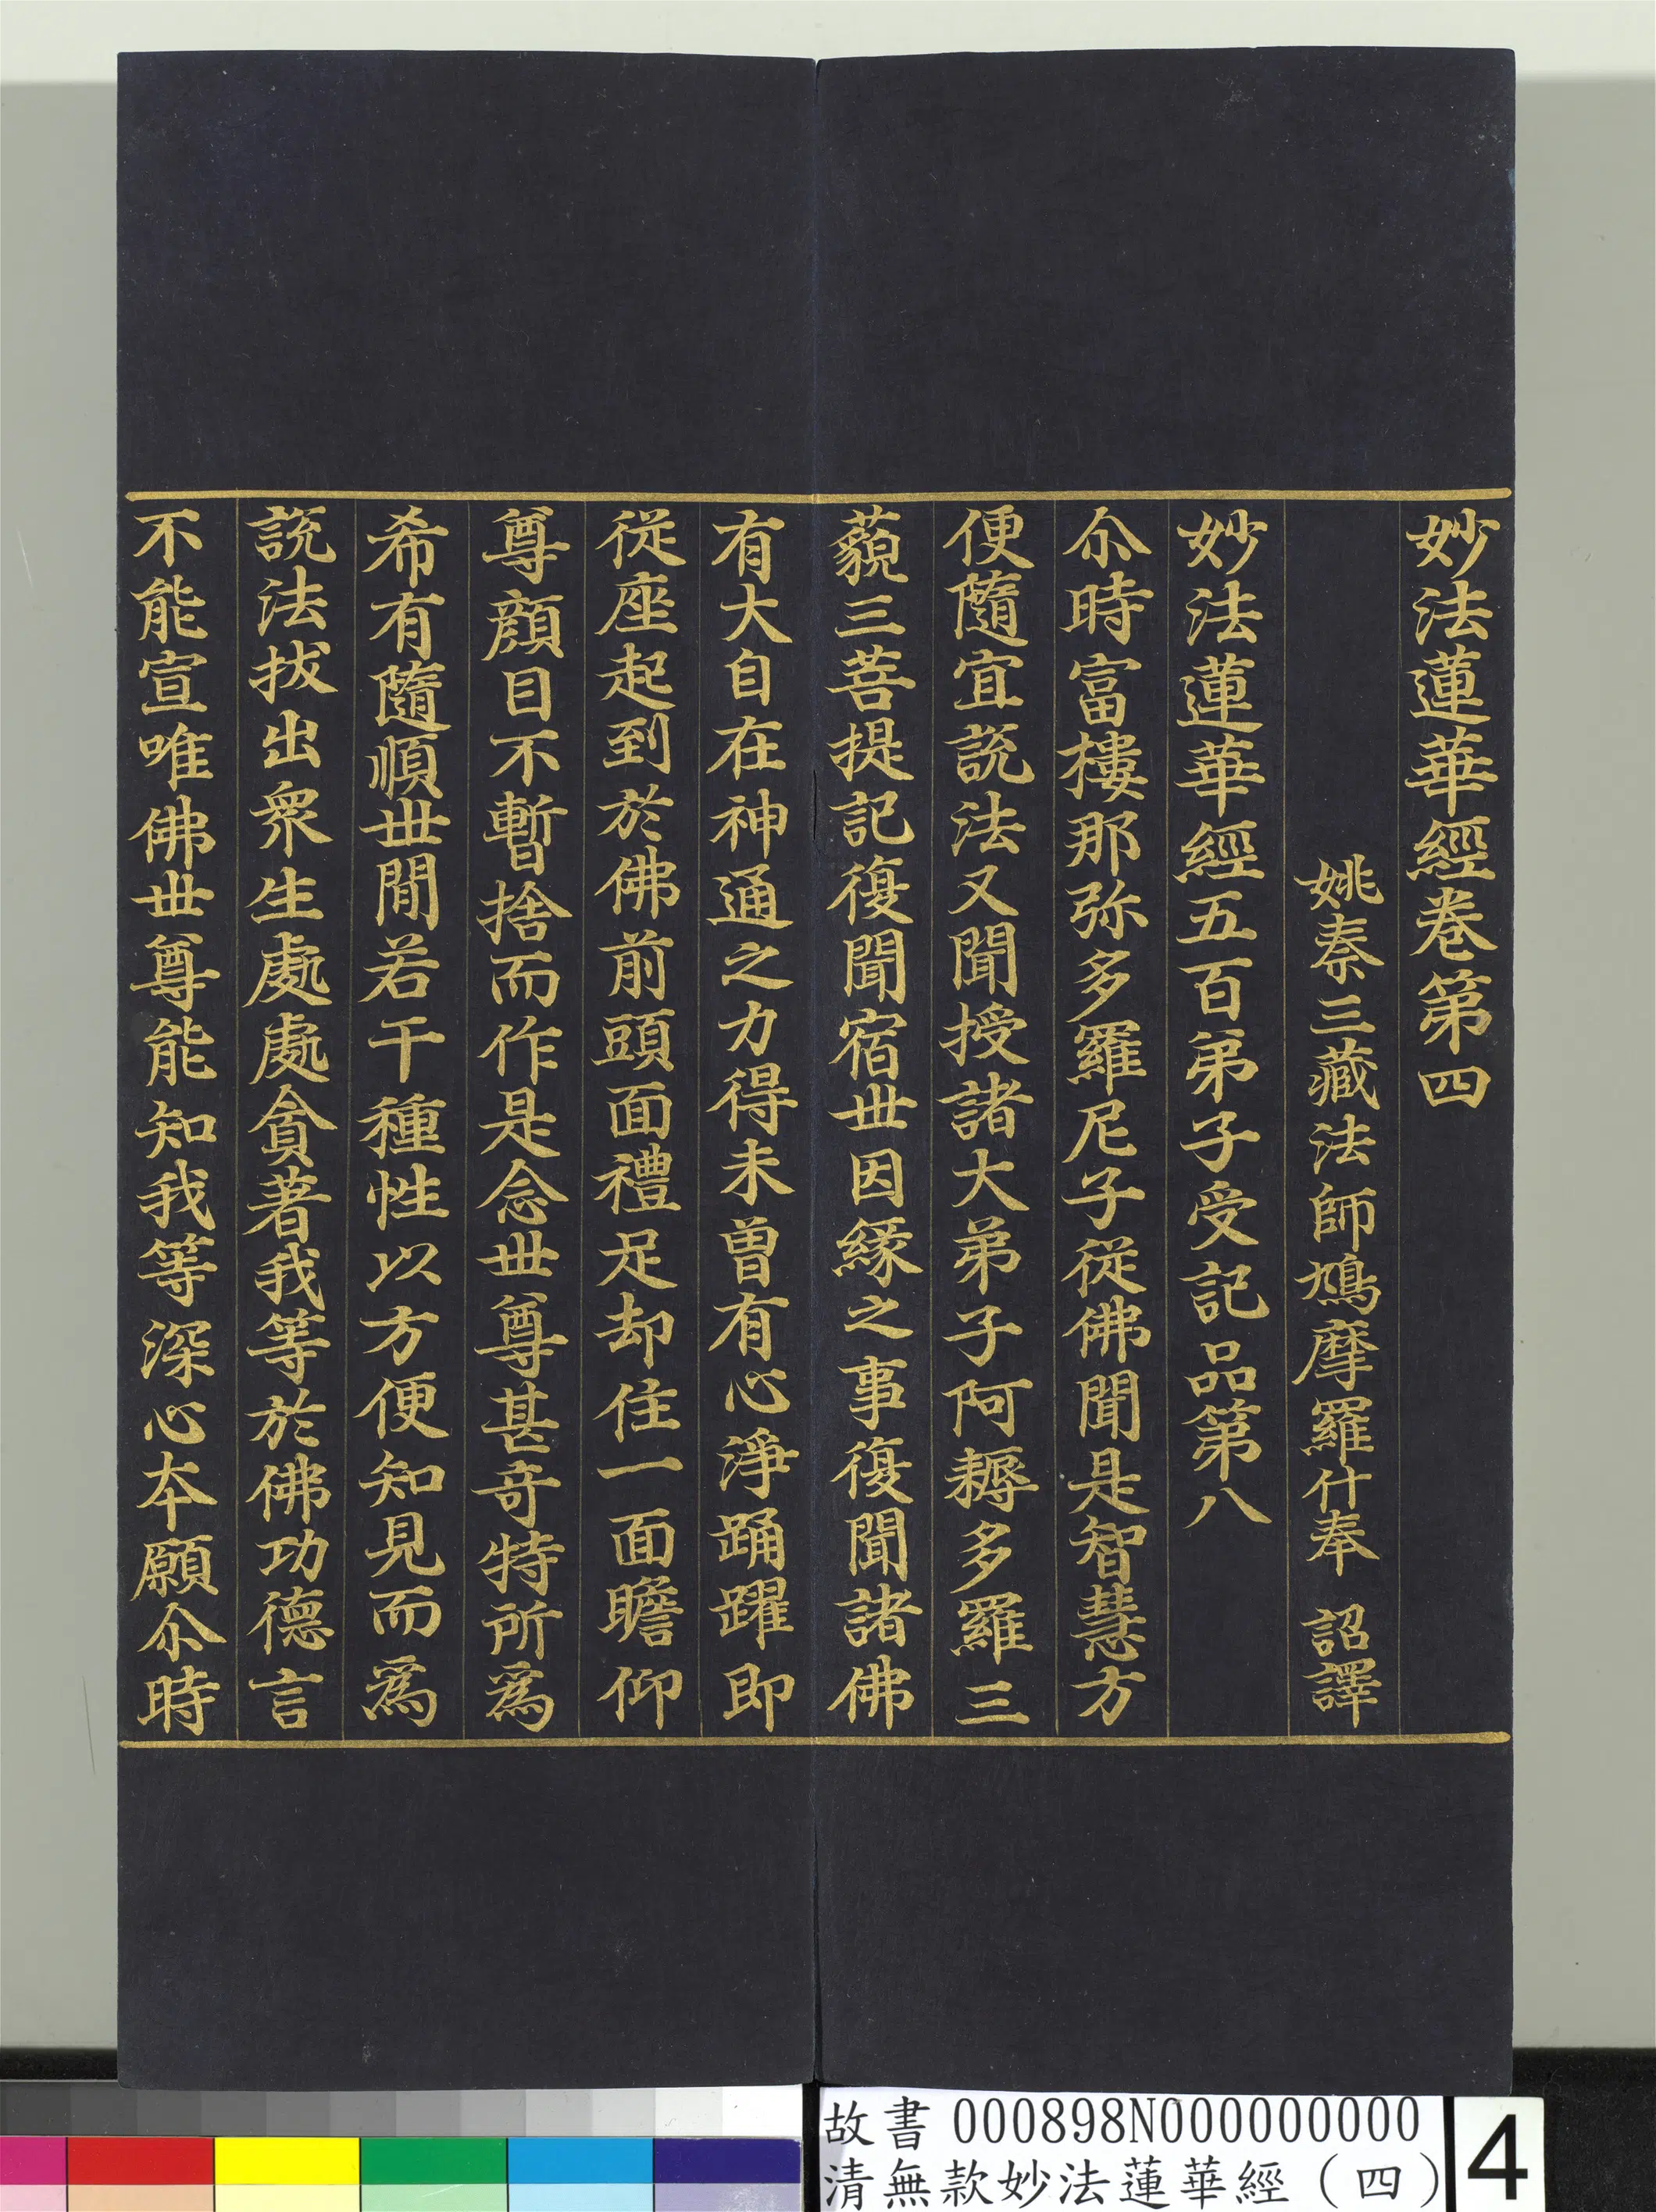 妙法蓮華經卷第四
姚秦三藏法師鳩摩羅什奉　詔譯
妙法蓮華經五百弟子受記品第八
尒時富樓那弥多羅尼子從佛聞是智慧方
便隨宜說法又聞授諸大弟子阿耨多羅三
藐三菩提記復聞宿世因緣之事復聞諸佛
有大自在神通之力得未曾有心淨踊躍即
從座起到於佛前頭面禮足却住一面瞻仰
尊顏目不暫捨而作是念世尊甚奇特所為
希有隨順世間若干種性以方便知見而為
說法拔出眾生處處貪著我等於佛功德言
不能宣唯佛世尊能知我等深心本願尒時
故書 000898N000000000
清無款妙法蓮華經（四）
4